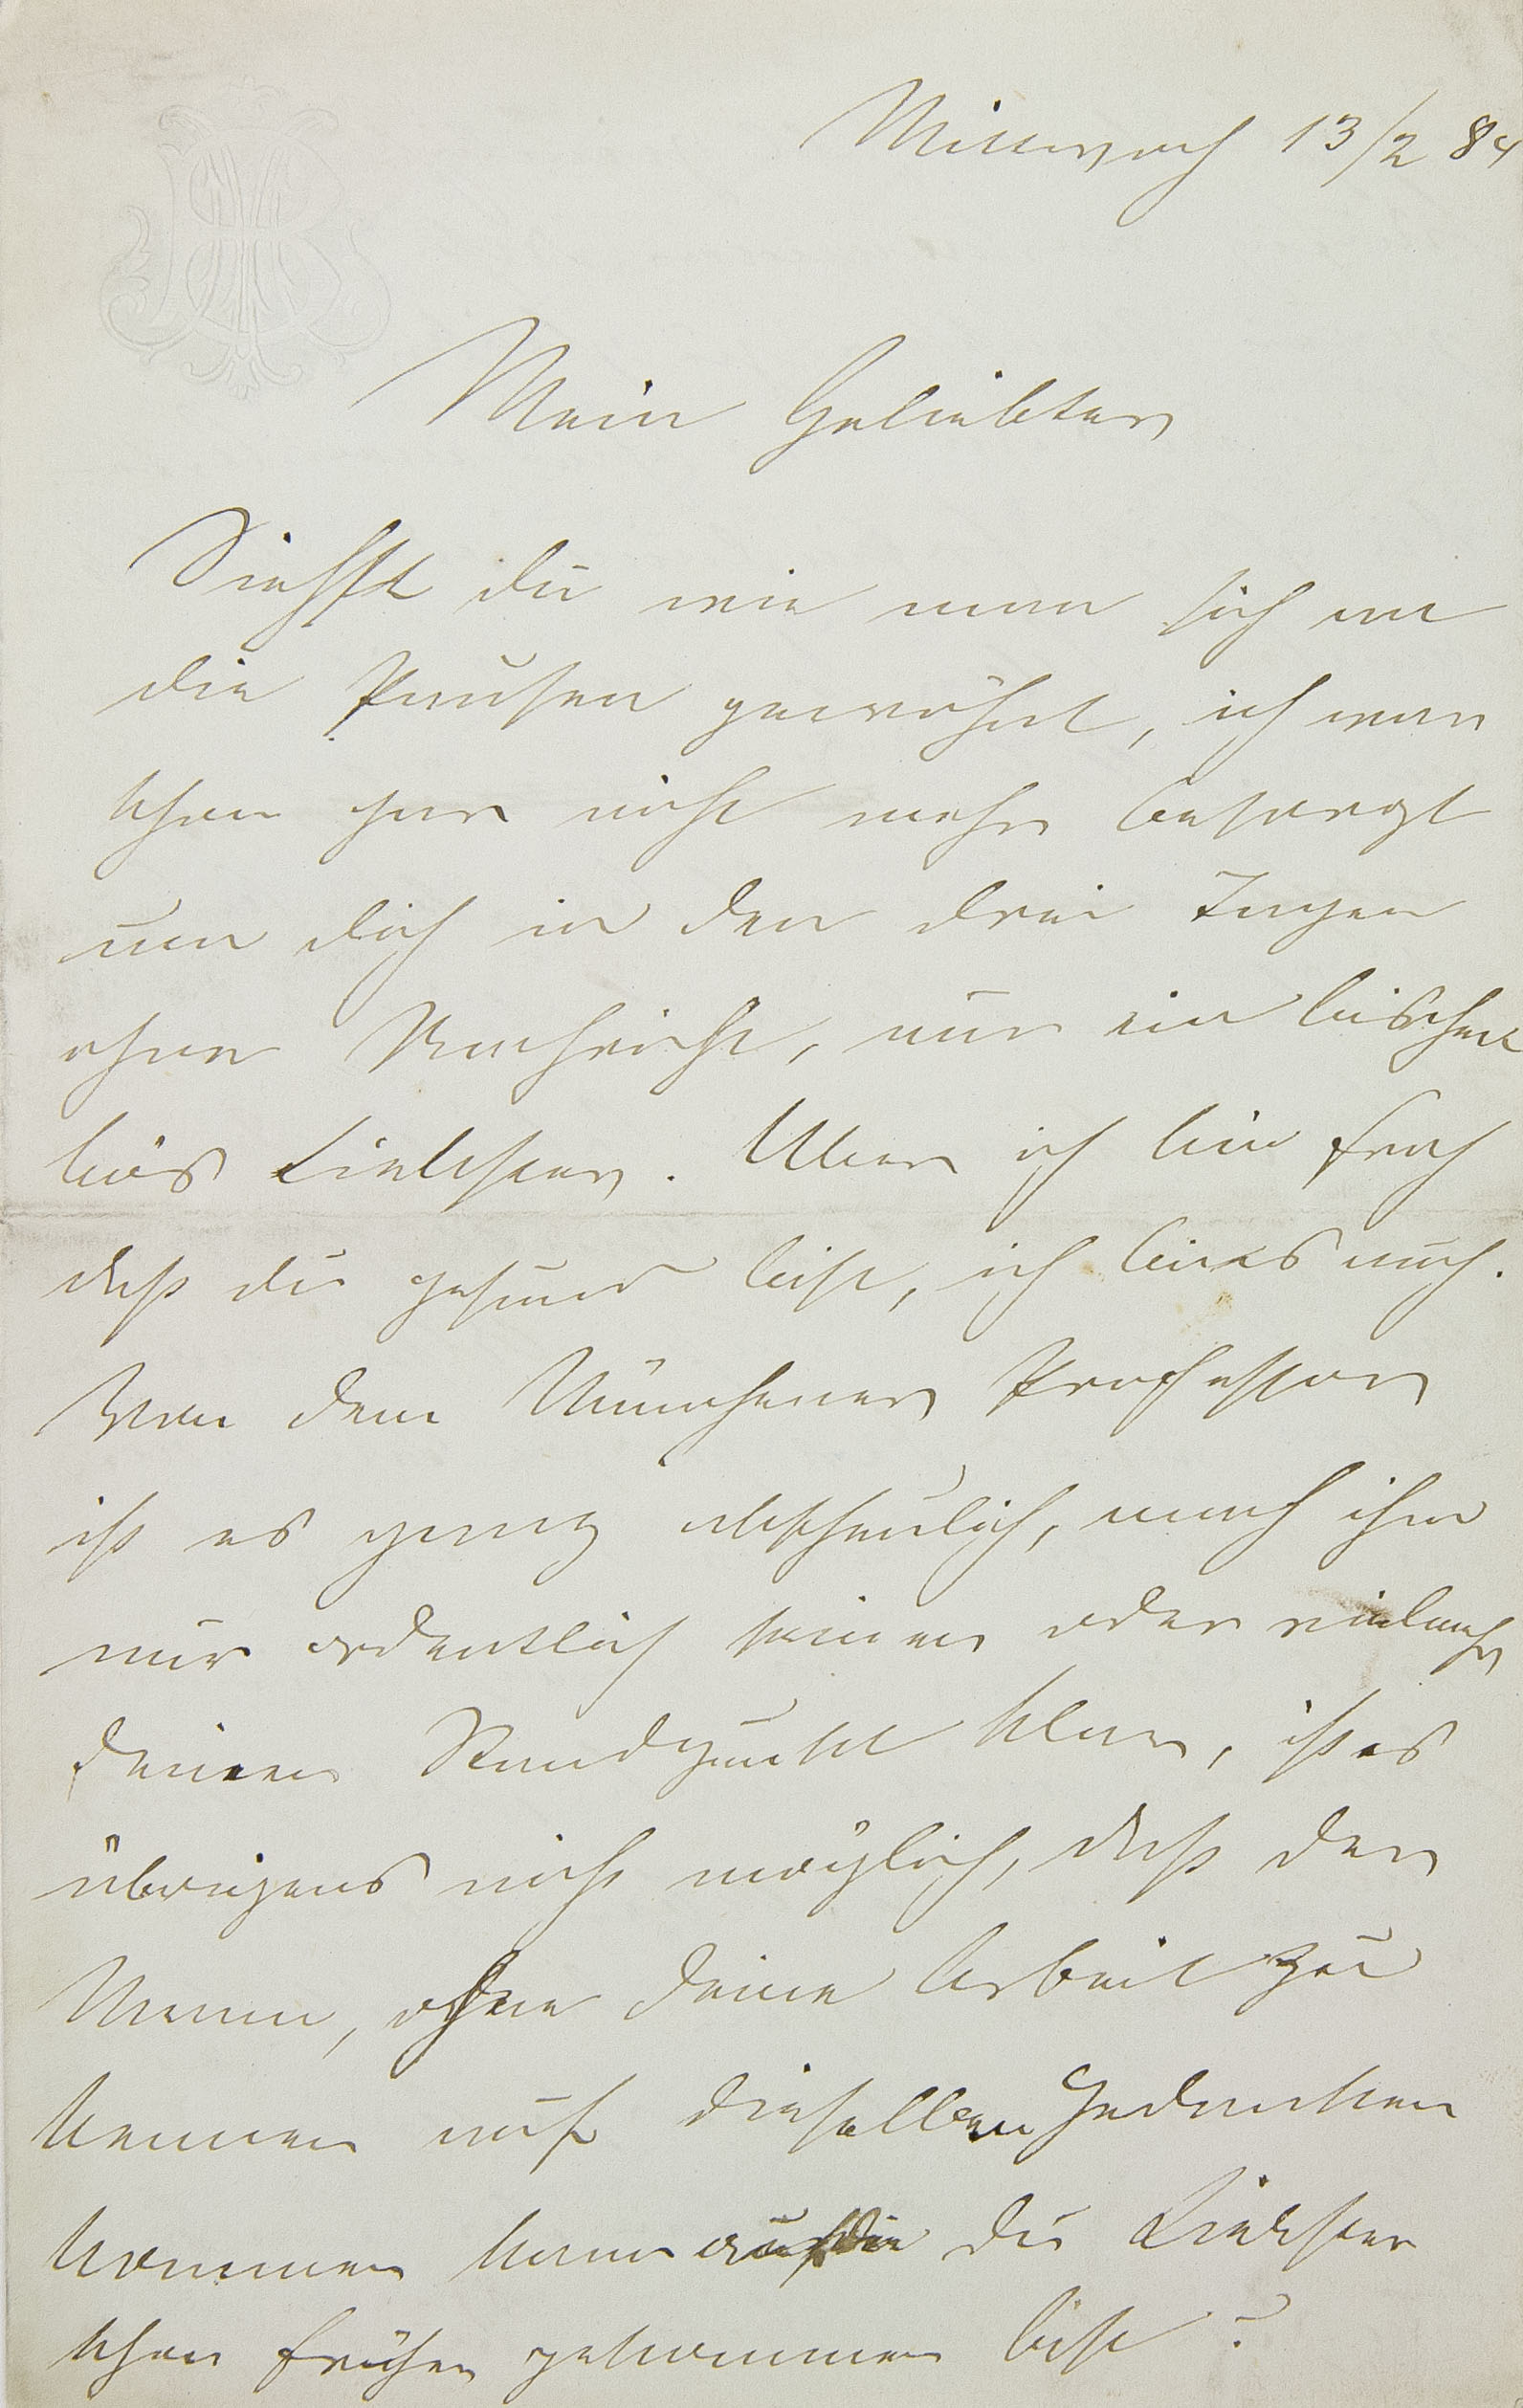 Mittwoch 13/2 84
Mein Geliebter
Siehst du wie man sich an
die Pausen gewöhnt, ich war
schon gar nicht mehr besorgt
um dich in den drei Tagen
ohne Nachricht, nur ein bischen
bös Liebster. Aber ich bin froh
daß du gesund bist, ich bin es auch.
Von dem Münchener Professor
ist es ganz abscheulich, mach ihm
nur ordentlich seinen oder vielmehr
deinen Standpunkt klar, ist es
übrigens nicht möglich, daß der
Mann, ohne deine Arbeit zu
kennen auf dieselben Gedanken
kommen kann auf die du Liebster
schon früher gekommen bist?